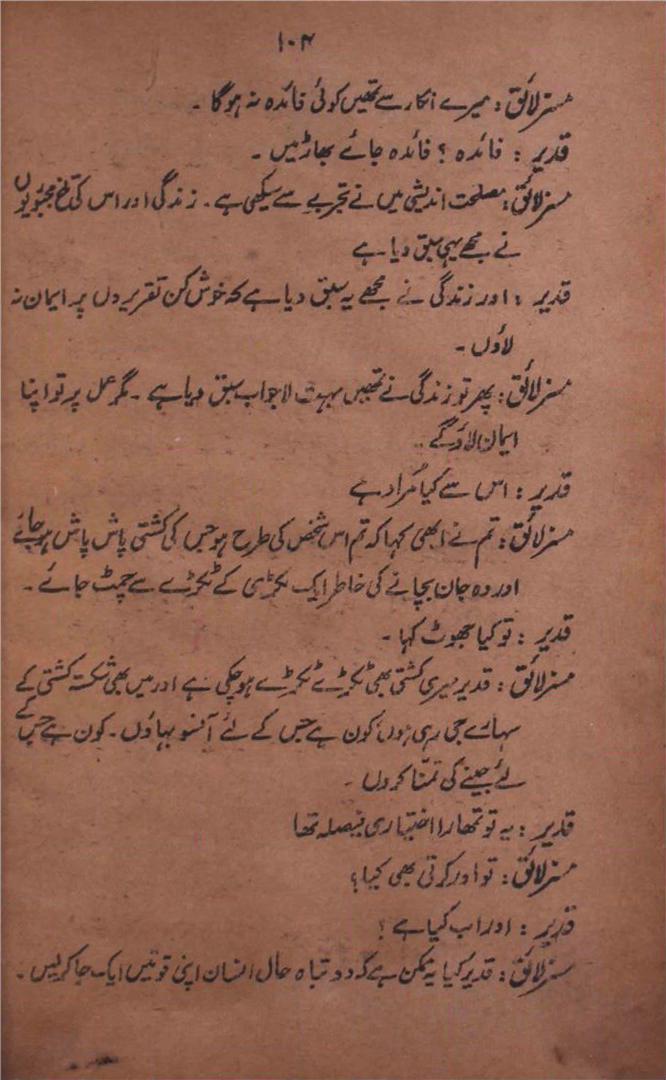 ۱۰۴
مسز لائق: میرے انکار سے تمھیں کوئی فائدہ نہ ہوگا۔
قدیر : فائدہ ؟ فائدہ جائے بھاڑ میں ۔
مسز لائق: مصلحت اندیشی میں نے تجربے سے سیکھی ہے۔ زندگی اور اس کی تلخ مجبوریوں
نے مجھے یہی سبق دیا ہے
قدیر : اور زندگی نے مجھے یہ سبق دیا ہے کہ خوش کن تقریروں پر ایمان نہ
لاؤں ۔
مسز لائق: پھر تو زندگی نے تمھیں بہت لاجواب سبق دیا ہے ۔ مگر عمل پر تو اپنا
ایمان لاؤ گے ۔
قدیر : اس سے کیا مُراد ہے
مسز لائق: تم نے ابھی کہا کہ تم اس شخص کی طرح ہو جس کی کشتی پاش پاش ہو جائے
اور وہ جان بچانے کی خاطر ایک لکڑی کے ٹکڑے سے چمٹ جائے ۔
قدیر : تو کیا جھوٹ کہا ۔
مسز لائق : قدیر میری کشتی بھی ٹکڑے ٹکڑے ہو چکی ہے اور میں بھی شکستہ کشتی کے
سہارے جی رہی ہوں کون ہے جس کے لئے آنسو بہاؤں ۔ کون ہے جس کے
لئے جینے کی تمنّا کروں ۔
قدیر : یہ تو تمھارا اختیاری فیصلہ تھا
مسز لائق : تو اور کرتی بھی کیا ؟
قدیر : اور اب کیا ہے ؟
مسز لائق : قدیر کیا یہ ممکن ہے کہ دو تباہ حال انسان اپنی قوتیں ایک جا کر لیں ۔